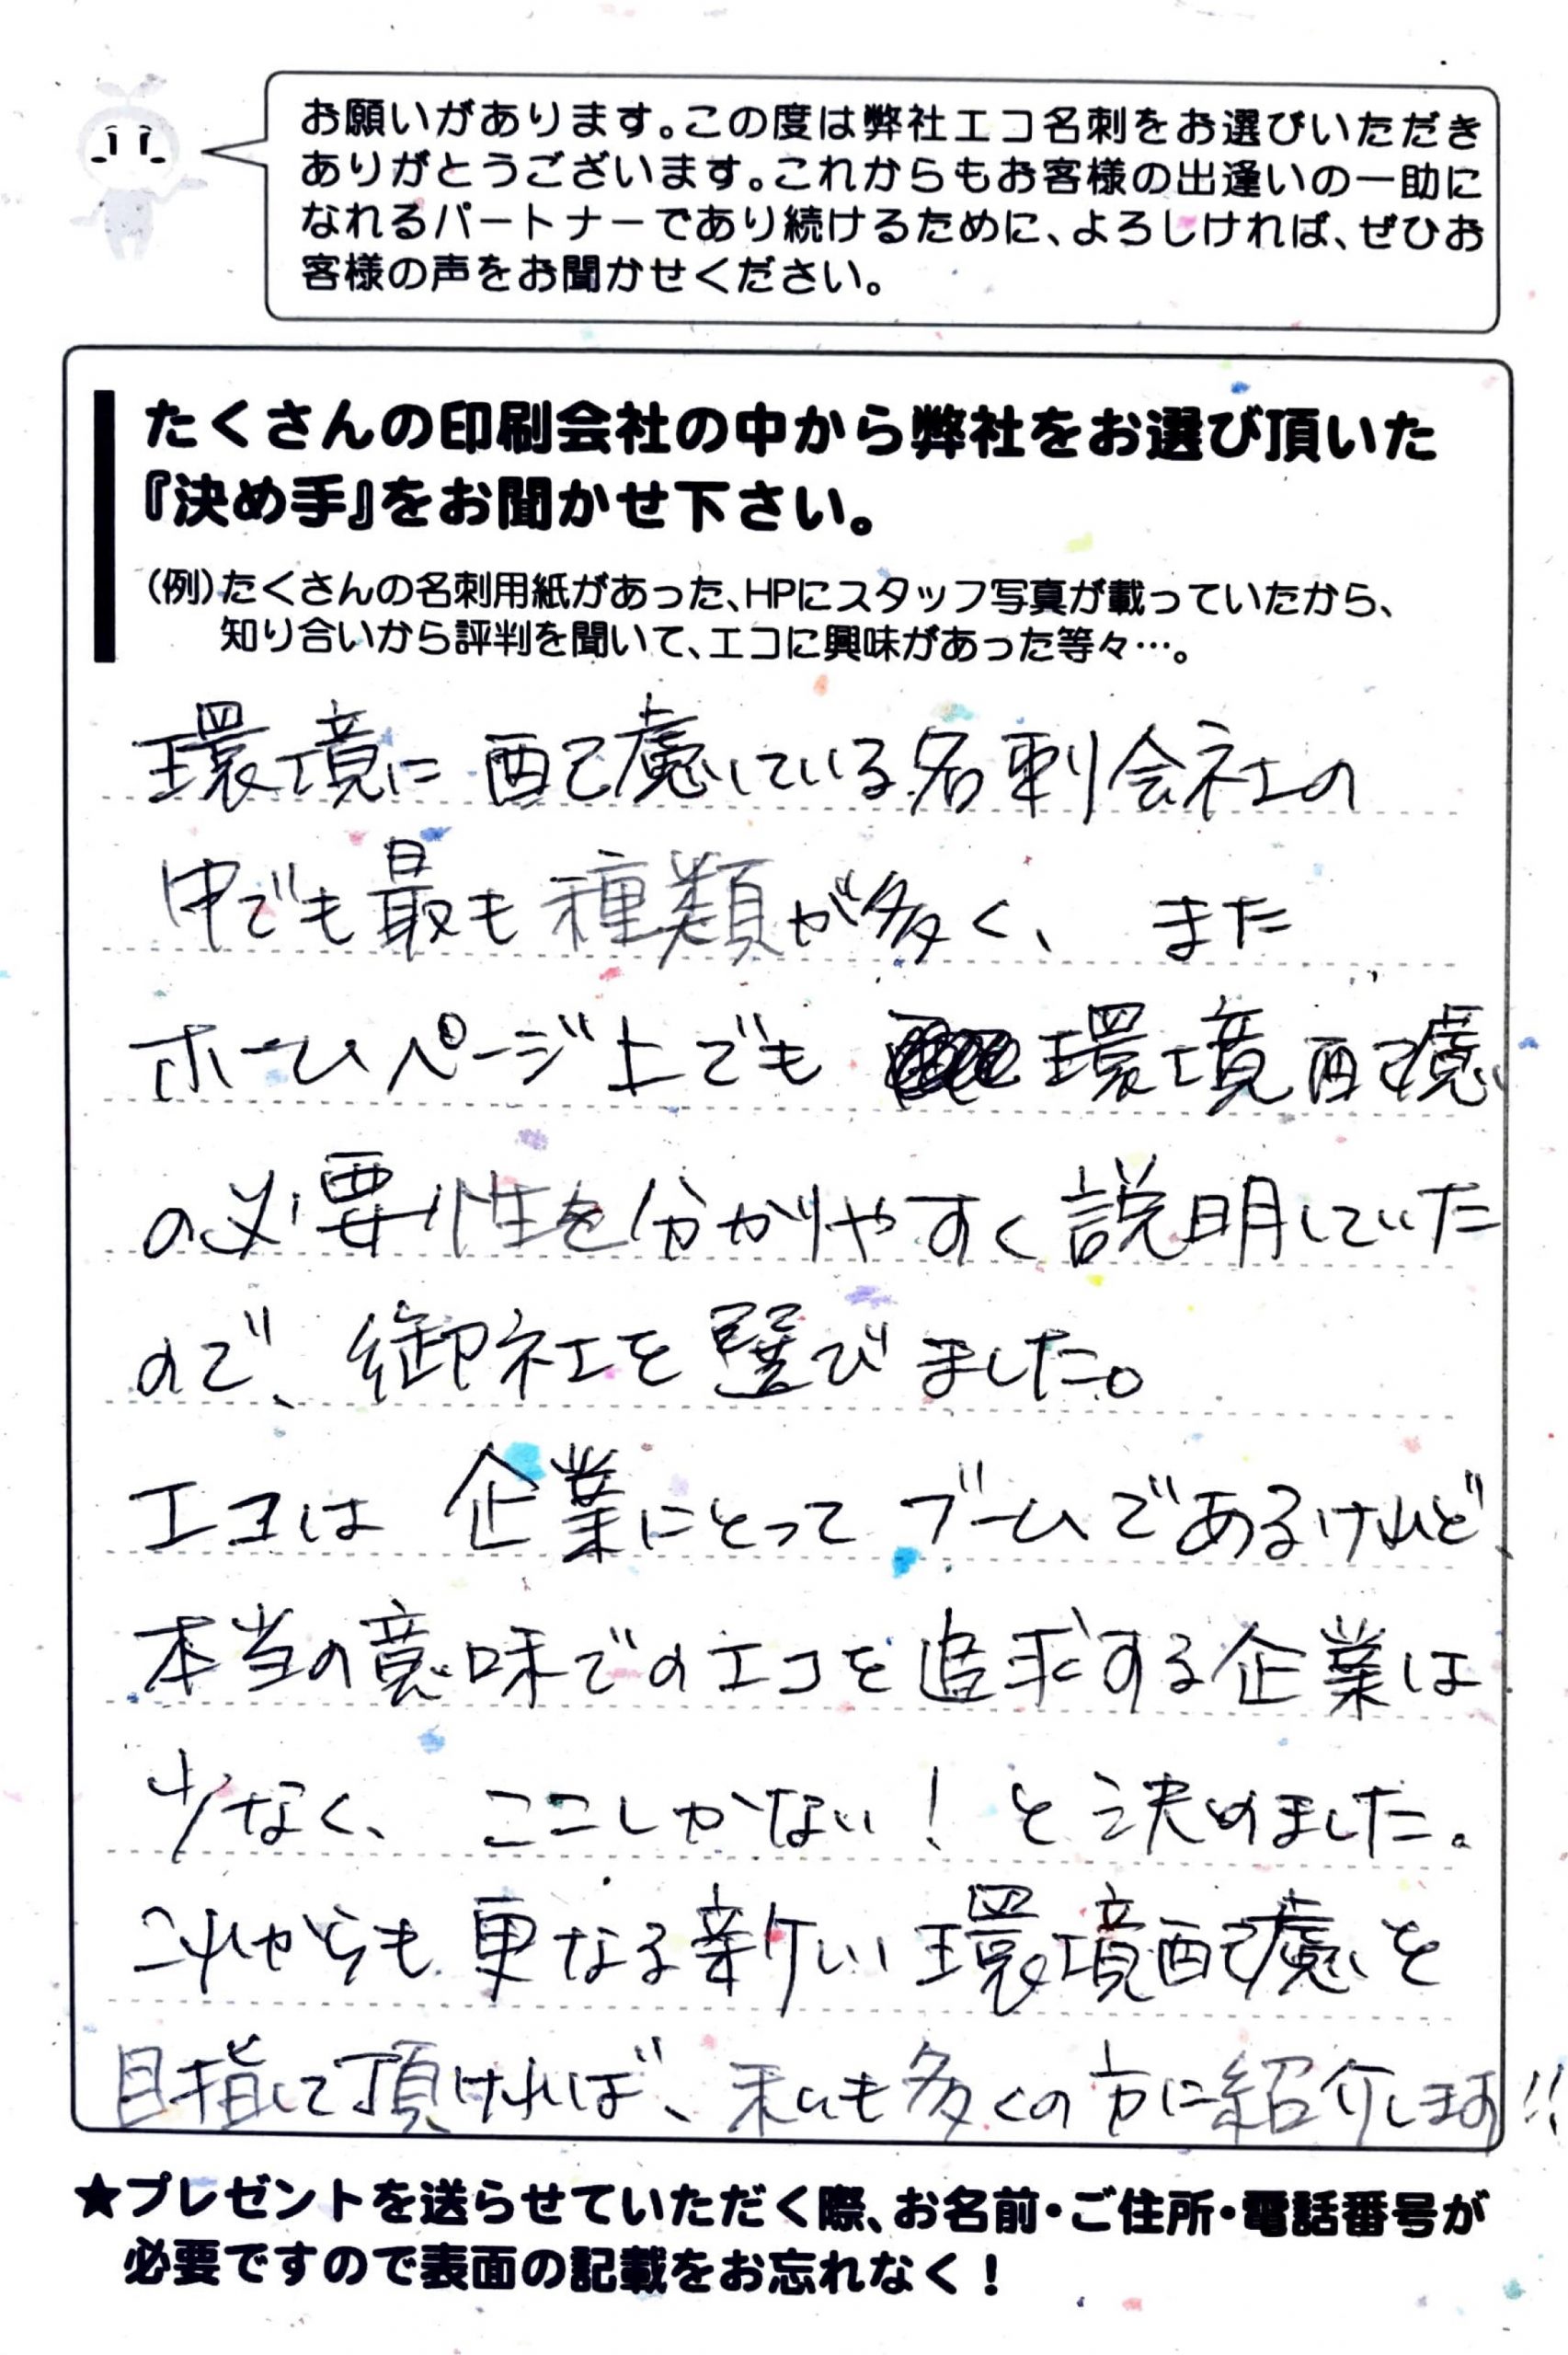 お願いがあります。この度は弊社エコ名刺をお選びいただき
ありがとうございます。これからもお客様の出逢いの一助に
なれるパートナーであり続けるために、よろしければ、ぜひお
客様の声をお聞かせください。
たくさんの印刷会社の中から弊社をお選び頂いた
『決め手』をお聞かせ下さい。
（例）たくさんの名刺用紙があった、HPにスタッフ写真が載っていたから、
知り合いから評判を聞いて、エコに興味があった等々…。
環境に配慮している名刺会社の
中でも最も種類が多く、また
ホームページ上でも環境配慮
の必要性を分かりやすく説明していた
ので、御社を選びました。
エコは企業にとってブームであるけれど、
本当の意味でのエコを追求する企業は
少なく、ここしかない！と決めました。
これからも更なる新しい環境配慮を
目指して頂ければ、私も多くの方に紹介します!!
★プレゼントを送らせていただく際、お名前・ご住所・電話番号が
必要ですので表面の記載をお忘れなく！